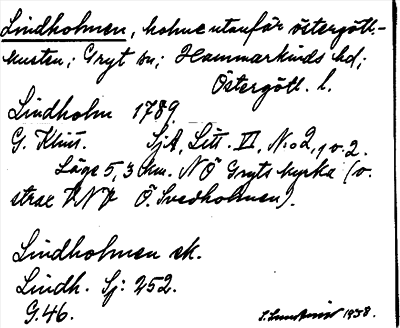 Lindholmen, holme utanför östergötl.-
kusten; Gryt sn; Hammarkinds hd;
Östergötl. l.
Lindholm 1789
G. Klint. SjA, Litt. VI, No 2, 1 o. 2.
Läge 5,3 km. NÖ Gryts kyrka (o.
strax VNV Ö. Svedholmen).
Lindholmen ek.
Lindh. Sj: 252.
G.46.
1938.